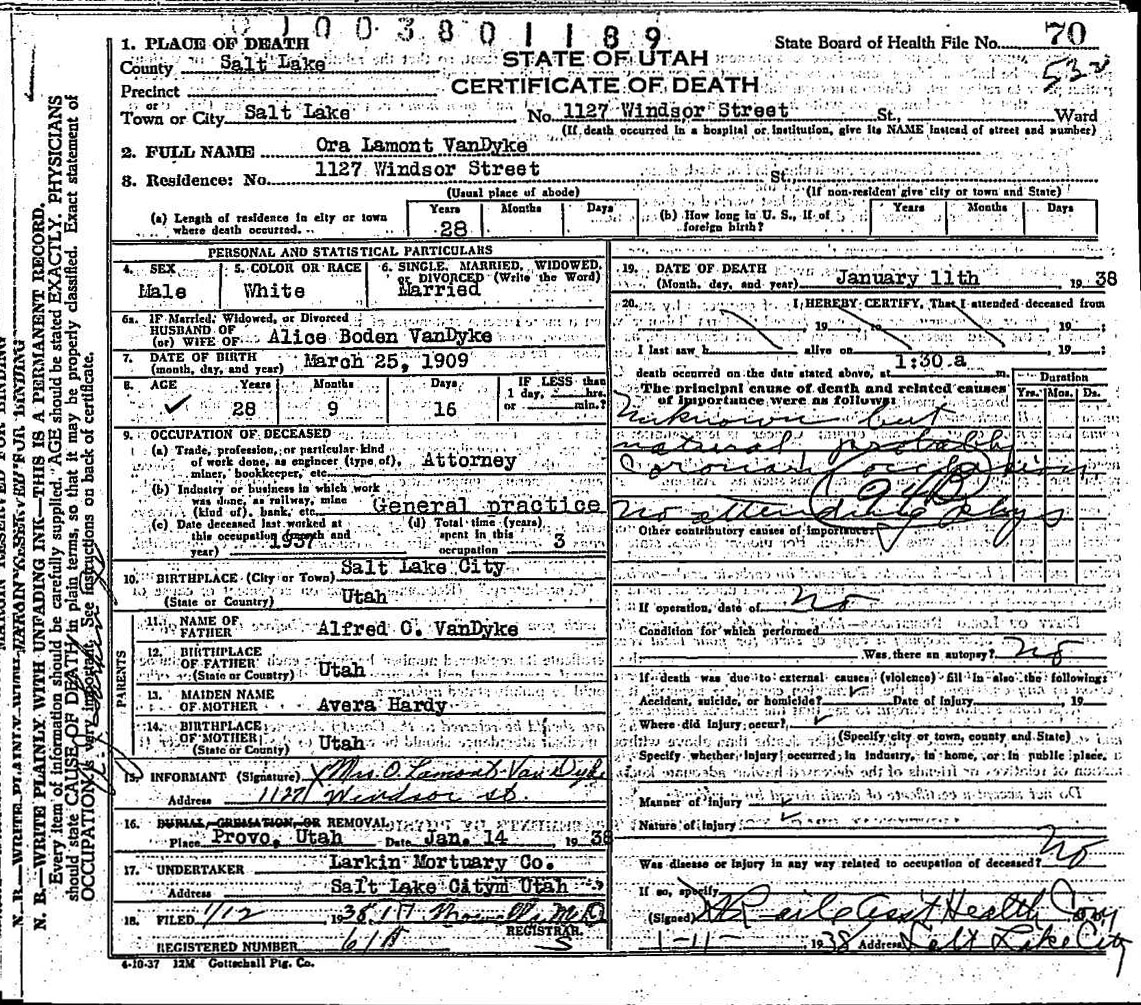 0 1 0 0 3 8 0 1 1 8 9
State Board of Health File No. 70
532
1. PLACE OF DEATH
STATE OF UTAH
County Salt Lake
CERTIFICATE OF DEATH
Precinct
or
Town or City Salt Lake No. 1127 Windsor Street St., Ward
(If death occurred in a hospital or institution, give its NAME instead of street and number)
2. FULL NAME Ora Lamont VanDyke
3. Residence: No. 1127 Windsor Street St.
(Usual place of abode) (If non-resident give city or town and State)
(a) Length of residence in city or town where death occurred. Years 28 Months Days (b) How long in U. S., if of foreign birth? Years Months Days
PERSONAL AND STATISTICAL PARTICULARS
4. SEX Male
5. COLOR OR RACE White
6. SINGLE, MARRIED, WIDOWED, or DIVORCED (Write the Word) Married
6a. IF Married, Widowed, or Divorced
HUSBAND OF
(or) WIFE OF Alice Boden VanDyke
7. DATE OF BIRTH
(month, day, and year) March 25, 1909
8. AGE Years Months Days IF LESS than
1 day, hrs.
or min.?
✓ 28 9 16
9. OCCUPATION OF DECEASED
(a) Trade, profession, or particular kind
of work done, as engineer (type of),
miner, bookkeeper, etc. Attorney
(b) Industry or business in which work
was done, as railway, mine
(kind of), bank, etc. General practice
(c) Date deceased last worked at
this occupation (month and
year) 1937
(d) Total time (years)
spent in this
occupation 3
10. BIRTHPLACE (City or Town) Salt Lake City
(State or Country) Utah
PARENTS
11. NAME OF
FATHER Alfred C. VanDyke
12. BIRTHPLACE
OF FATHER
(State or Country) Utah
13. MAIDEN NAME
OF MOTHER Avera Hardy
14. BIRTHPLACE
OF MOTHER
(State or Country) Utah
15. INFORMANT (Signature) X Mrs. O. Lamont Van Dyke
Address 1127 Windsor St.
16. BURIAL, CREMATION, OR REMOVAL
Place Provo, Utah Date Jan. 14 19 38
17. UNDERTAKER Larkin Mortuary Co.
Address Salt Lake Citym Utah
18. FILED 1/12 1938
REGISTRAR.
REGISTERED NUMBER
4-10-37 12M Gottschall Ptg. Co.
19. DATE OF DEATH
(Month, day, and year) January 11th 19 38
20. I HEREBY CERTIFY, That I attended deceased from
19 , to , 19 ;
I last saw h alive on , 19 ;
death occurred on the date stated above, at 1:30.a m.
The principal cause of death and related causes
of importance were as follows:
Duration
Yrs. Mos. Ds.
Unknown but
natural probably
Coronary occlusion
No attending phys
Other contributory causes of importance:
If operation, date of No
Condition for which performed
Was there an autopsy? No
If death was due to external causes (violence) fill in also the following:
Accident, suicide, or homicide? ✓ Date of Injury , 19
Where did injury occur? ✓
(Specify city or town, county and State)
Specify whether injury occurred in industry, in home, or in public place.
Manner of injury ✓
Nature of injury ✓
Was disease or injury in any way related to occupation of deceased? No
If so, specify
(Signed) Asst Health Com
1-11- 1938 Address Salt Lake City
N. B.—WRITE PLAINLY WITH UNFADING INK—THIS IS A PERMANENT RECORD.
Every item of information should be carefully supplied. AGE should be stated EXACTLY. PHYSICIANS
should state CAUSE OF DEATH in plain terms, so that it may be properly classified. Exact statement of
OCCUPATION is very important. See instructions on back of certificate.